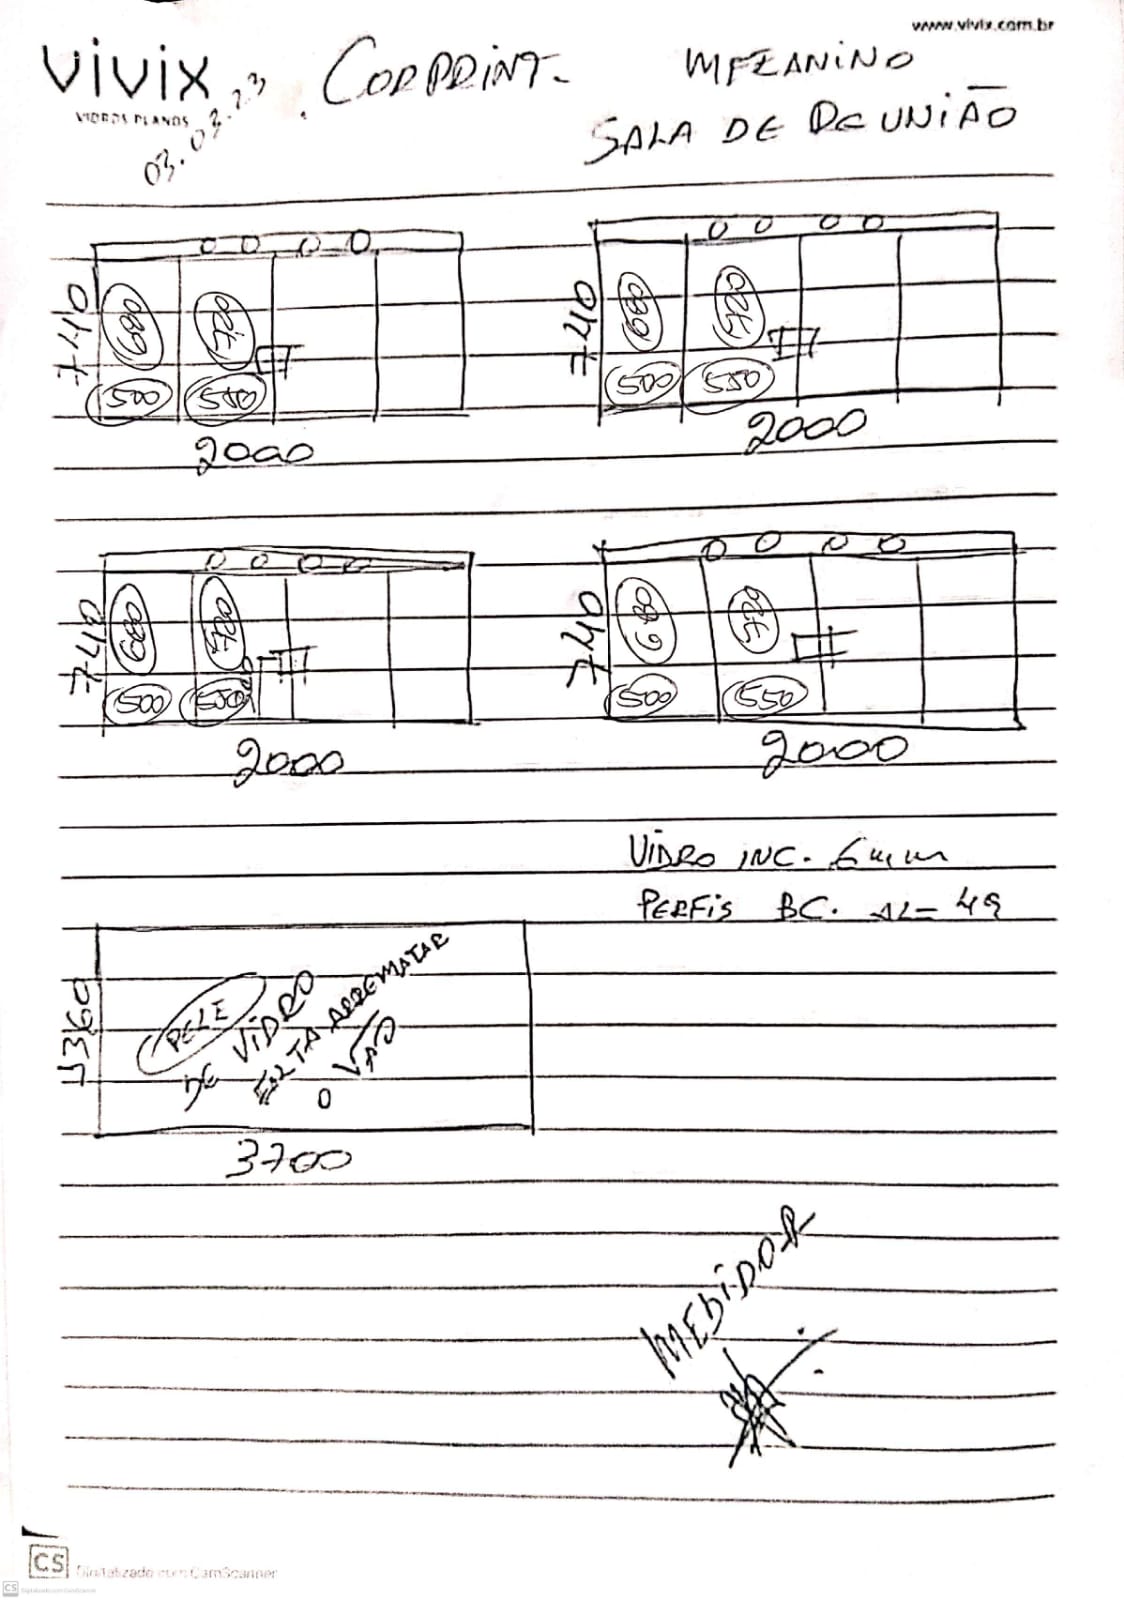 www.vivix.com.br
vivix
VIDROS PLANOS
03.03.23
CORPRINT-
MEZANINO
SALA DE REUNIÃO
740
680
720
500
550
2000
740
680
720
500
550
2000
740
680
720
500
550
2000
740
680
720
500
550
2000
VIDRO INC. 6mm
PERFIS BC. AL=49
4360
PELE
DE VIDRO
FALTA ARREMATAR
O VÃO
3700
MEDIDOR
CS Digitalizado com CamScanner
CS Digitalizado com CamScanner